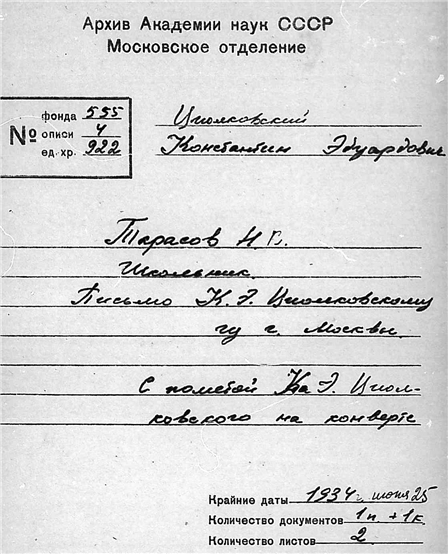 Архив Академии наук СССР
Московское отделение
№
фонда 555
описи 4
ед. хр. 922
Циолковский
Константин Эдуардович
Тарасов Н. В.
Школьник.
Письмо К. Э. Циолковскому
из г. Москвы.
С пометой К. Э. Циол-
ковского на конверте
Крайние даты 1934 г. июня 25
Количество документов 1п. + 1к.
Количество листов 2